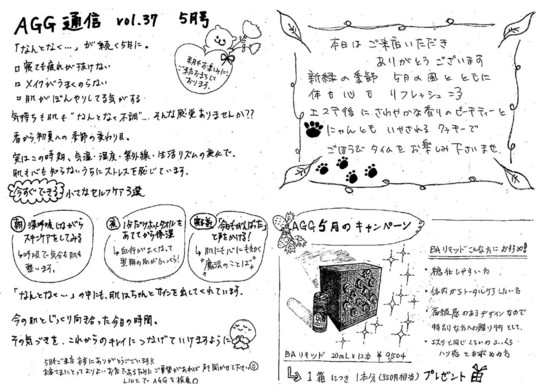 AGG通信 vol.37 5月号
「なんとなく…」が続く5月に。
□ 寝ても疲れが抜けない
□ メイクがうまくのらない
□ 肌がぼんやりしてる気がする
気持ちも肌も"なんとなく不調"…そんな感覚ありませんか??
春から初夏への季節の変わり目。
実はこの時期、気温・湿度・紫外線・生活リズムの変化で、
肌も心も知らないうちにストレスを感じています。
今すぐできる 小さなセルフケア3選
朝 深呼吸しながら
スキンケアをしてみる
↳呼吸で気分も肌も
整います。
夜 1分だけホットタオルを
あててから保湿
↳血行がよくなって
翌朝の肌がふっくら!
「今日もがんばった」
と声をかける!
↳肌にも心にも効く
"魔法のことば"
「なんとなく…」の中にも、肌はちゃんとサインを出してくれています。
今の肌とじっくり向き合った今日の時間。
その気づきを、これからのキレイにつなげていけますように
LINEで AGGを検索
本日はご来店いただき
ありがとうございます
新緑の季節 5月の風とともに
体も心も リフレッシュ=3
エステ後にさわやかな香りのピーチティーと
にゃんとも いやされる クッキーで
ごほうびタイムをお楽しみ下さいませ
AGG5月のキャンペーン
BAリキッドこんな方にお勧め!
・糖化しやすい方
・体内からトータルケアしたい方
・高級感のあるデザインなので
特別な方への贈り物として。
BAリキッド 20mL×12本 ¥9504
↳1箱につき1本分(350円相当)プレゼント